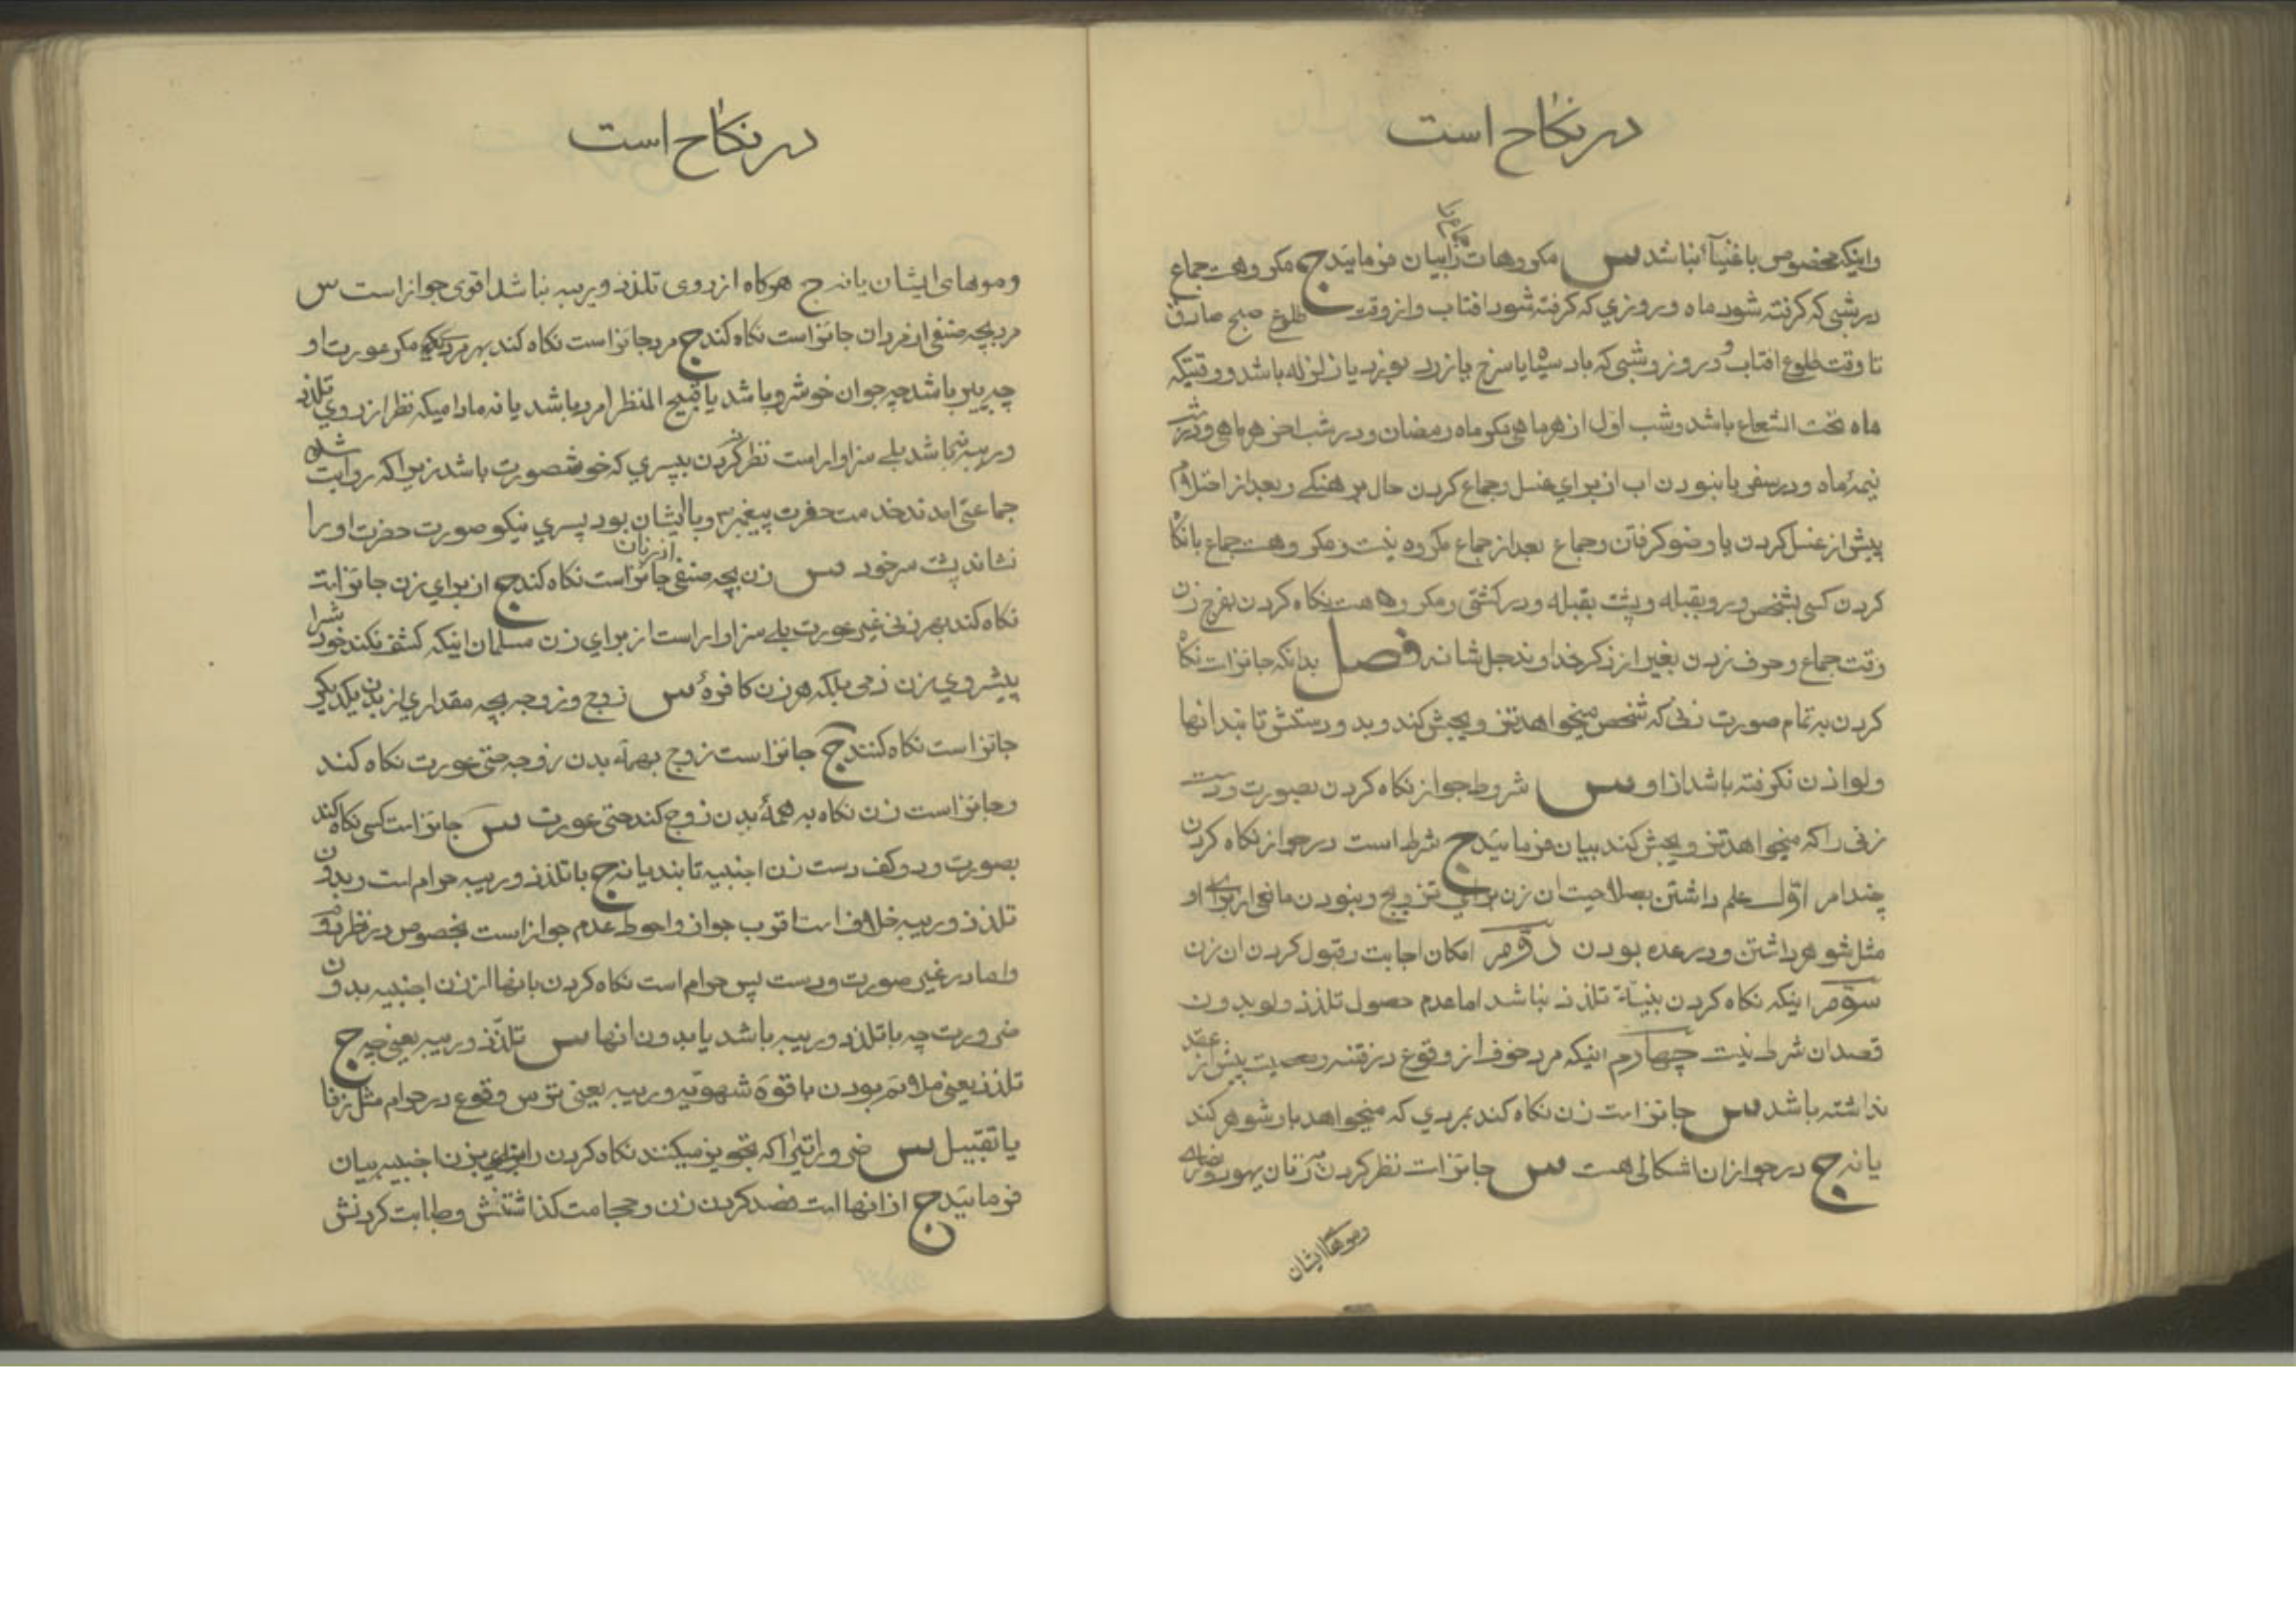 در نکاح است
واینکه مخصوص باغنیآء نباشد س مکروهات جماع را بیان فرمائید ج مکروهست جماع
در شبی که کرفته شود ماه و روزی که کرفته شود افتاب و از وقت طلوع صبح صادق
تا وقت طلوع افتاب و در روز و شبی که باد سیاه یا سرخ یا زرد بوزد یا زلزله باشد و وقتیکه
ماه تحت الشعاع باشد و شب اول از هر ماهی مکر ماه رمضان و در شب اخر هر ماهی و در شب
نیمۀ ماه و در سفر با نبودن اب از برای غسل و جماع کردن حال برهنکی و بعد از احتلام
پیش از غسل کردن یا وضو کرفتن و جماع بعد از جماع مکروه نیست و مکروهست جماع با نکاه
کردن کسی بشخص و رو بقبله و پشت بقبله و در کشتی و مکروهست نکاه کردن بفرج زن
وقت جماع و حرف زدن بغیر از ذکر خداوند جل شانه فصل بدانکه جایز است نکاه
کردن به تمام صورت زنی که شخص میخواهد تزویجش کند و بدو دستش تا بند انها
ولو اذن نکرفته باشد از او س شروط جواز نکاه کردن بصورت و دست
زنی را که میخواهد تزویجش کند بیان فرمائید ج شرط است در جواز نکاه کردن
چند امر اوّل علم داشتن بصلاحیت ان زن برای تزویج و نبودن مانعی از برای او
مثل شوهر داشتن و در عده بودن دوّم امکان اجابت و قبول کردن ان زن
سوّم اینکه نکاه کردن بنیّة تلذذ نباشد اما عدم حصول تلذذ ولو بدون
قصد ان شرط نیست چهارم اینکه مرد خوف از وقوع در فتنه و معصیت پیش از عقد
نداشته باشد س جایز است زن نکاه کند بمردی که میخواهد باو شوهر کند
یا نه ج در جواز ان اشکالی هست س جایز است نظر کردن زنان یهود و نصاری
وموهای ایشان
در نکاح است
وموهای ایشان یا نه ج هرکاه از روی تلذذ و ریبه نباشد اقوی جواز است س
مرد بچه صنفی از مردان جایز است نکاه کند ج مرد جایز است نکاه کند بهر مردی مکر عورت او
چه پیر باشد چه جوان خوشرو باشد یا قبیح المنظر امرد باشد یا نه مادامیکه نظر از روی تلذذ
و ریبه نباشد بلی سزاوار است نظر نکردن بپسری که خوشصورت باشد زیرا که روایت شده
جماعتی امدند خدمت حضرت پیغمبر و با ایشان بود پسری نیکو صورت حضرت او را
نشاند پشت سر خود س زن بچه صنفی از زنان جایز است نکاه کند ج از برای زن جایز است
نکاه کند بهر زنی غیر عورت بلی سزاوار است از برای زن مسلمان اینکه کشف نکند خود را
پیش روی زن ذمی بلکه هر زن کافرۀ س زوج و زوجه بچه مقداری از بدن یکدیکر
جایز است نکاه کنند ج جایز است زوج بهمۀ بدن زوجه حتی عورت نکاه کند
و جایز است زن نکاه به همۀ بدن زوج کند حتی عورت س جایز است کسی نکاه کند
بصورت و دو کف دست زن اجنبیه تا بند یا نه ج با تلذذ و ریبه حرام است و بدون
تلذذ و ریبه خلاف است اقرب جواز و احوط عدم جواز است بخصوص در نظر دوّم
و اما در غیر صورت و دست پس حرام است نکاه کردن بانها از زن اجنبیه بدون
ضرورت چه با تلذذ و ریبه باشد یا بدون انها س تلذّذ و ریبه یعنی چه ج
تلذذ یعنی ملائم بودن با قوّۀ شهویّه و ریبه یعنی ترس وقوع در حرام مثل زنا
یا تقبیل س ضروراتی را که تجویز میکنند نکاه کردن بزن اجنبیه بیان
فرمائید ج از انها است فصد کردن زن و حجامت کذاشتنش و طبابت کردنش